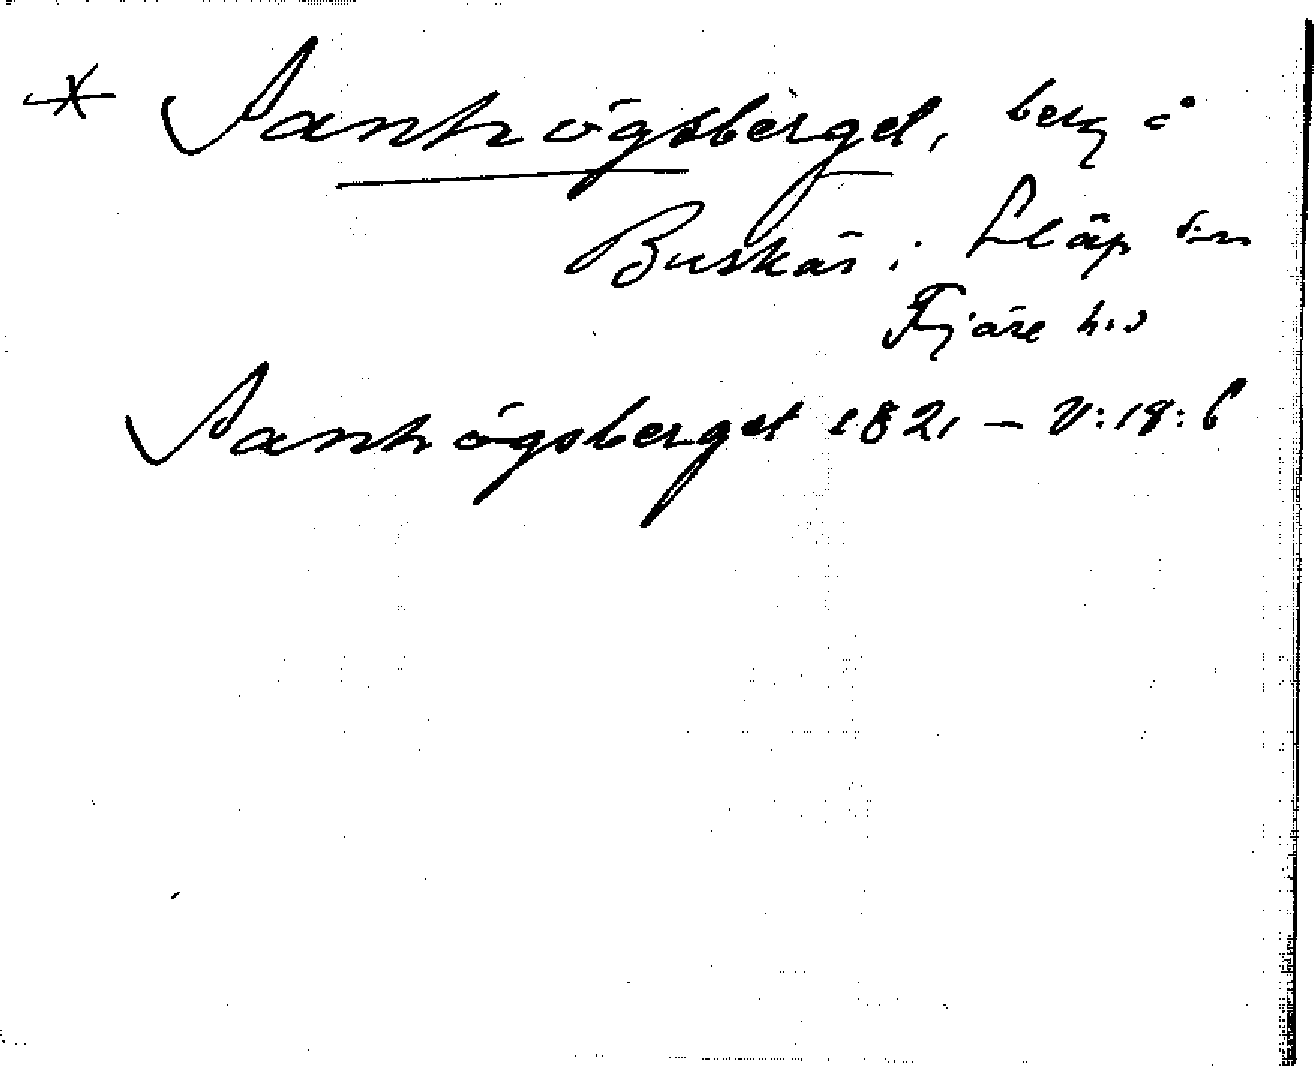 * Sanhögsberget, berg å
Buskär i Släp sn
Fjäre hd
Sanhögsberget 1821 – V:18:6